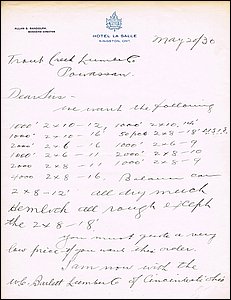 ALLAN S. RANDOLPH,
MANAGING DIRECTOR
HOTEL LA SALLE
KINGSTON, ONT.
May 21/30
Trout Creek Lumber Co
Powassan.
Dear Sirs -
We want the following
1000' 2x10-12, 1000' 2x10, 14'
1000' 2x10-16 50 pcs 2x8-18'
2000' 2x6-16 1000' 2x6-9
1000' 2x6-11 2000' 2x8-10
1000' 2x6-12 1000' 2x8-9
4000 2x8-16. Balance can
2x8-12' all dry much
Hemlock all rough except
the 2x8-18'
You must quote a very
low price if you want this order.
I am now with the
W.E. Bartlett Lumber Co of Cincinnati Ohio